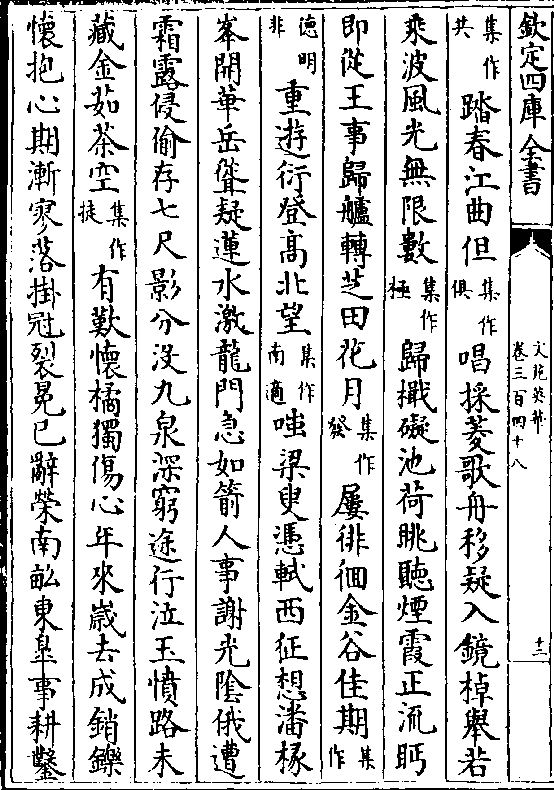 欽定四庫全書
文苑英華
卷三百四十八
十三
集作共踏春江曲但集作俱唱採菱歌舟移疑入鏡棹舉若
乘波風光無限數集作極歸檝礙池荷眺聽煙霞正流眄
即從王事歸艫轉芝田花月集作發屢徘徊金谷佳期集作
德明非重遊衍登高北望集作南適嗤梁叟憑軾西征想潘掾
峯開華岳聳疑蓮水激龍門急如箭人事謝光陰俄遭
霜露侵偷存七尺影分没九泉深窮途行泣玉憤路未
藏金茹荼空集作捷有歎懷橘獨傷心年來嵗去成銷鑠
懷抱心期漸寥落掛冠裂冕已辭榮南畝東臯事耕鑿